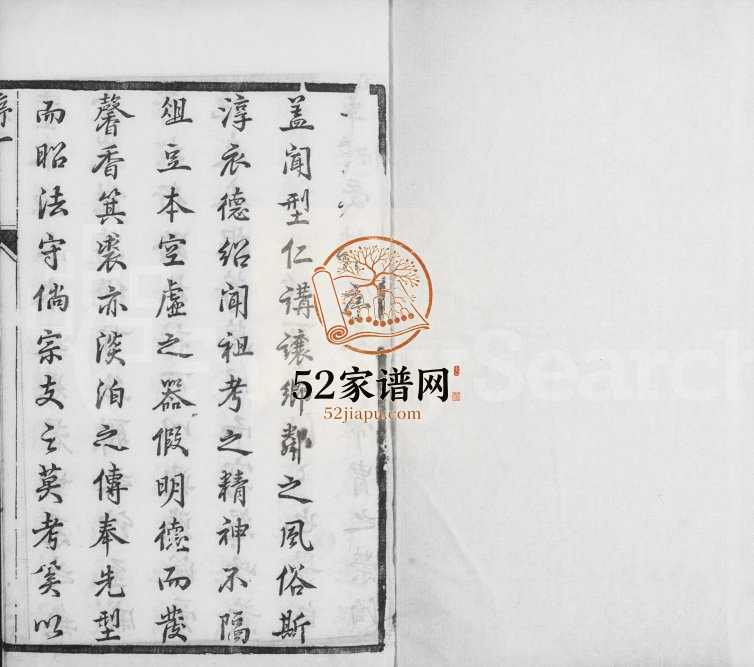 序
蓋闻型仁講讓鄉鄰之風俗斯
淳衣德紹闻祖考之精神不隔
俎豆本空虛之器假明德而發
馨香箕裘亦淡泊之傳奉先型
而昭法守倘宗支之莫考奚以
序一
52家谱网
52jiapu.com
Search